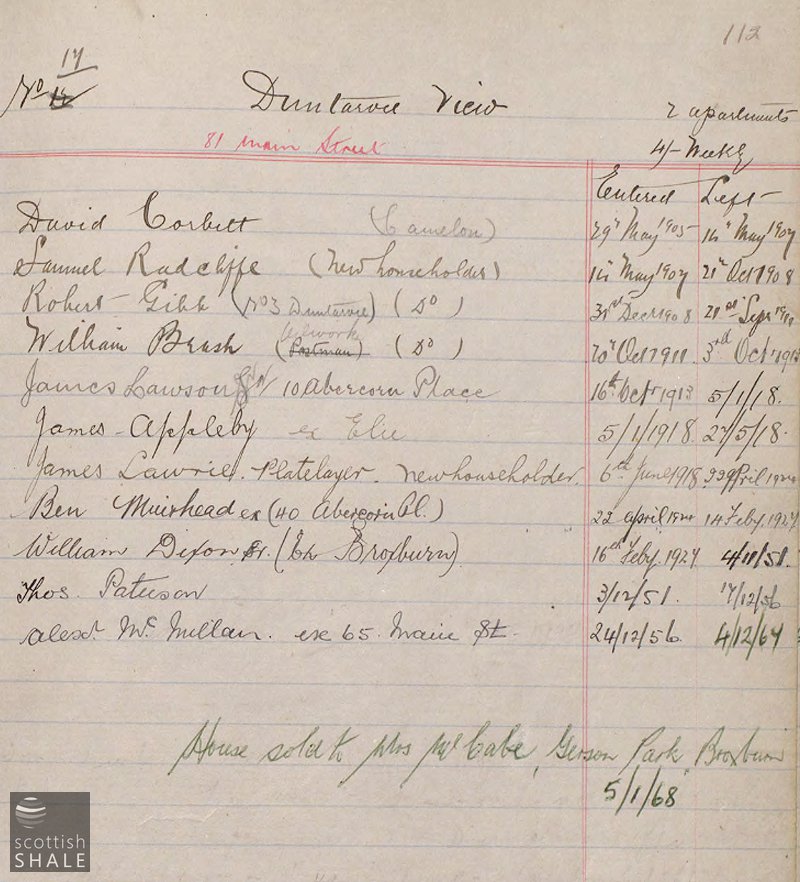 112
17
No 12
Duntarvie View
2 apartments
81 Main Street
4/- Weekly
Entered Left
David Corbett (Camelon) 29th May 1905 14th May 1907
Samuel Radcliffe (New householder) 14th May 1907 21st Oct 1908
Robert Gibb (No 3 Duntarvie) (Do) 31st Decr 1908 21st Sepr
Oilwork
William Brash (Postman) (Do) 20th Oct 1911 3rd Oct 1913
James Lawson 10 Abercorn Place 16th Octr 1913 5/1/18.
James Appleby ex Elie 5/1/1918. 27/5/18.
James Lawrie. Platelayer. New householder. 6th June 1918 22 April 1924
Ben Muirhead ex (40 Abercorn Pl.) 22 April 1924 14 Feby. 1927
William Dixon Sr. (Ex Broxburn) 16th Feby. 1927 4/11/51.
Thos. Paterson 3/12/51. 17/12/56
Alexdr McMillan. ex 65. Main St. 24/12/56. 4/12/67
House sold to Mrs McCabe, Park Broxburn
5/1/68
scottish
SHALE